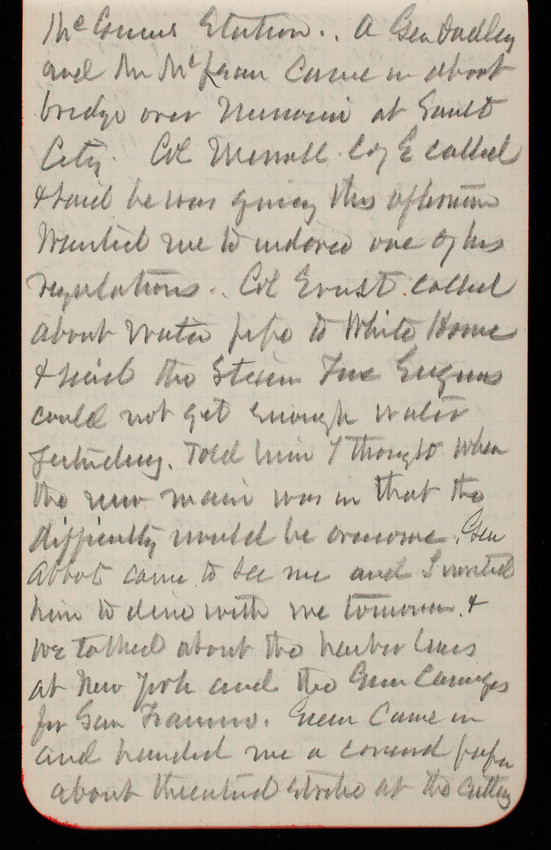 Station.. A Gen Dudley
and Mr McLean came in about
bridge over Missouri at Sault
City. Col Merrill Eng E called
& said he was going this afternoon
Wanted me to indorse one of his
regulations.. Col Ernst called
about water pipe to White House
& said the Steam Fire Engines
could not get enough water
yesterday. Told him I thought when
the new main was in that the
difficulty would be overcome. Gen
Abbot came to see me and I invited
him to dine with me tomorrow &
we talked about the harbor lines
at New York and the Gun Carriages
for San Francisco. Green came in
and handed me a coround paper
about threatened strike at the